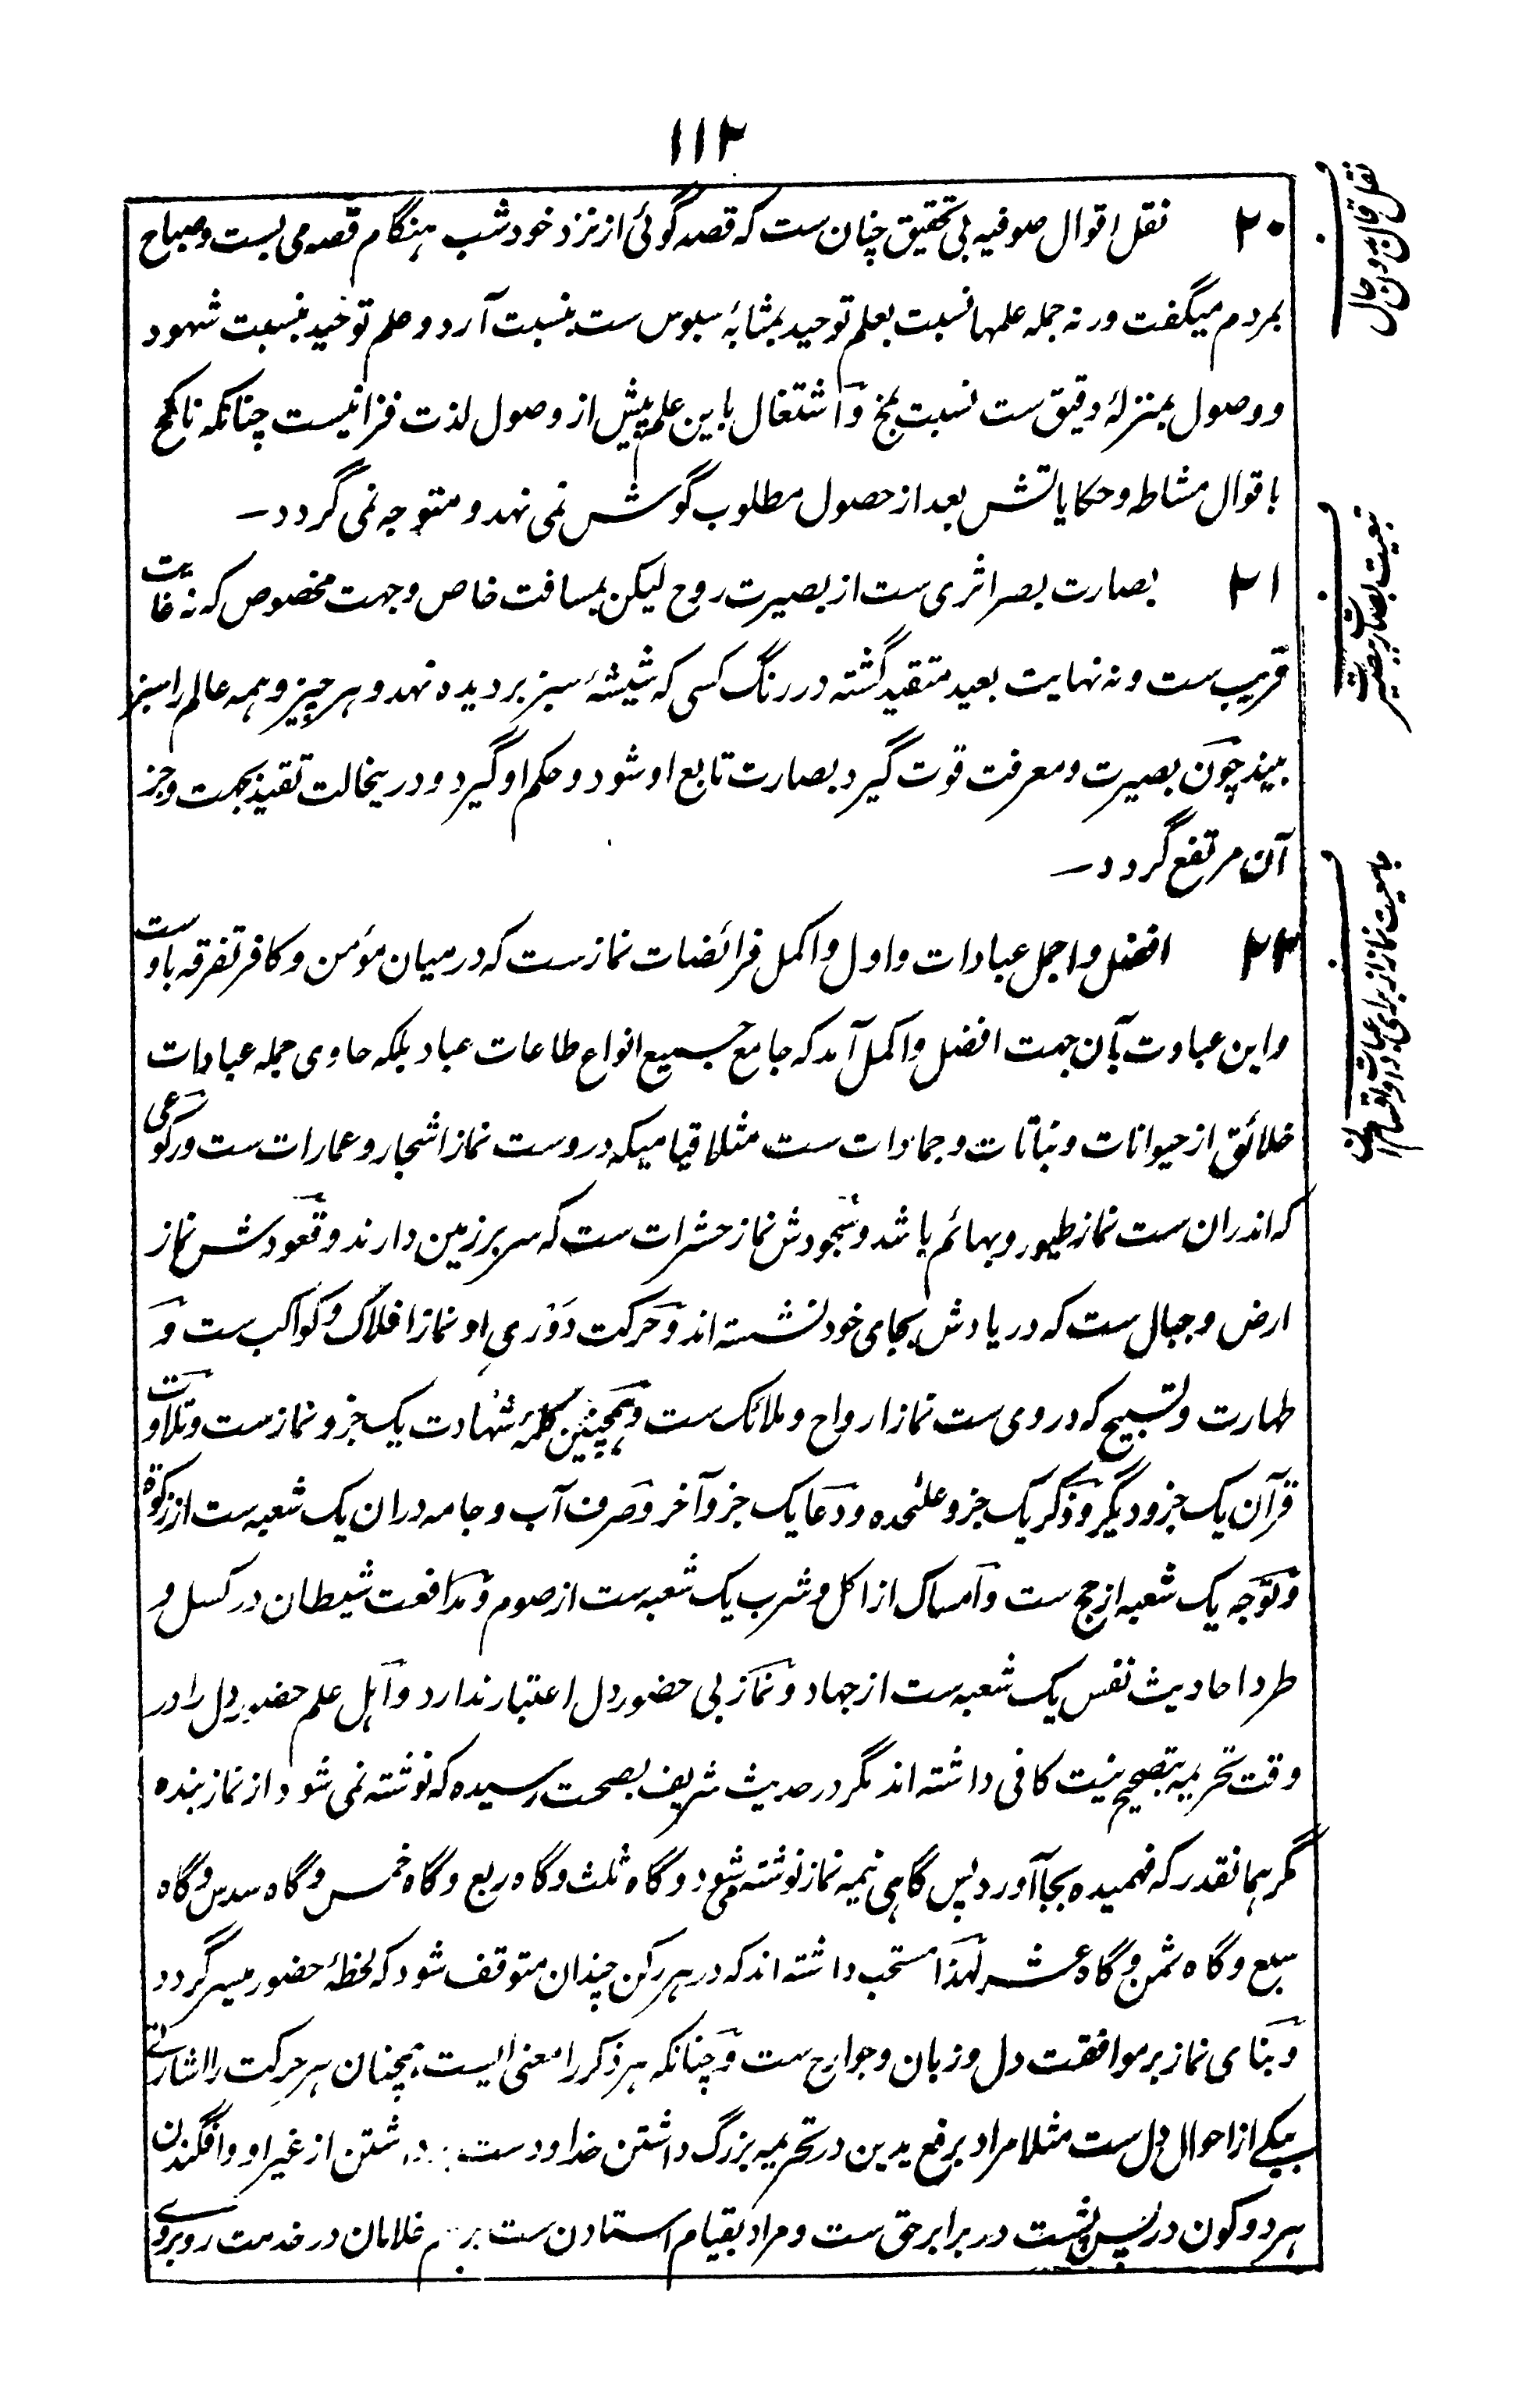 ۱۱۲
۲۰ نقل اقوال صوفیه بی تحقیق چنان ست که قصه گوئی از نزد خود شب هنگام قصه می بست و صباح
بمردم میگفت ورنه جمله علمها نسبت بعلم توحید بمثابهٔ سبوس ست بنسبت آرد و علم توحید بنسبت شهود
و وصول بمنزلهٔ دقیق ست نسبت بمخ و اشتغال باین علم پیش از وصول لذت فزا نیست چنانکه ناکح
باقوال مشاطه و حکایاتش بعد از حصول مطلوب گوش نمی نهد و متوجه نمی گردد –
۲۱ بصارت بصر اثری ست از بصیرت روح لیکن بمسافت خاص وجهت مخصوص که نه غایت
قریب ست و نه نهایت بعید متقید گشته در رنگ کسی که شیشهٔ سبز بر دیده نهد و هر چیز و همه عالم را سبز
بیند چون بصیرت و معرفت قوت گیرد بصارت تابع او شود و حکم او گیرد و درینحالت تقید بجهت و جز
آن مرتفع گردد –
۲۲ افضل و اجمل عبادات و اول و اکمل فرائضات نماز ست که درمیان مؤمن و کافر تفرقه باوست
و این عبادت بآن جهت افضل و اکمل آمد که جامع جمیع انواع طاعات عباد بلکه حاوی جمله عبادات
خلائق از حیوانات و نباتات و جمادات ست مثلا قیامیکه دروست نماز اشجار و عمارات ست و رکوعی
که اندران ست نماز طیور و بهائم باشد و سجودش نماز حشرات ست که سر بر زمین دارند و قعودش نماز
ارض و جبال ست که در یادش بجای خود نشسته اند و حرکت دَوری او نماز افلاک و کواکب ست و
طهارت و تسبیح که در وی ست نماز ارواح و ملائک ست و همچنین کلمهٔ شهادت یک جزو نماز ست و تلاوت
قرآن یک جزو دیگر و ذکر یک جزو علیحده و دعا یک جزو آخر و صرف آب و جامه دران یک شعبه ست از زکوة
و توجه یک شعبه از حج ست و امساک از اکل و شرب یک شعبه ست از صوم و مدافعت شیطان در کسل و
طرد احادیث نفس یک شعبه ست از جهاد و نماز بی حضور دل اعتبار ندارد و اهل علم حضور دل را در
وقت تحریمه بتصحیح نیت کافی داشته اند مگر در حدیث شریف بصحت رسیده که نوشته نمی شود از نماز بنده
مگر همانقدر که فهمیده بجا آورد پس گاهی نیمه نماز نوشته می شود و گاه ثلث و گاه ربع و گاه خمس و گاه سدس و گاه
سبع و گاه ثمن و گاه عشر لهذا مستحب داشته اند که در هر رکن چندان متوقف شود که لحظهٔ حضور میسر گردد
و بنای نماز بر موافقت دل و زبان و جوارح ست و چنانکه هر ذکر را معنی ایست همچنان هر حرکت را اشارتی
بیکے از احوال دل ست مثلا مراد برفع یدین در تحریمه بزرگ داشتن خدا و دست داشتن از غیر او و افگندن
هر دو کون در پس پشت در برابر حق ست و مراد بقیام استادن ست غلامان در خدمت روبروے
نقل قال بدون حال
تبعیت بصارت بصیرت
جامعیت نماز از برای عبادات